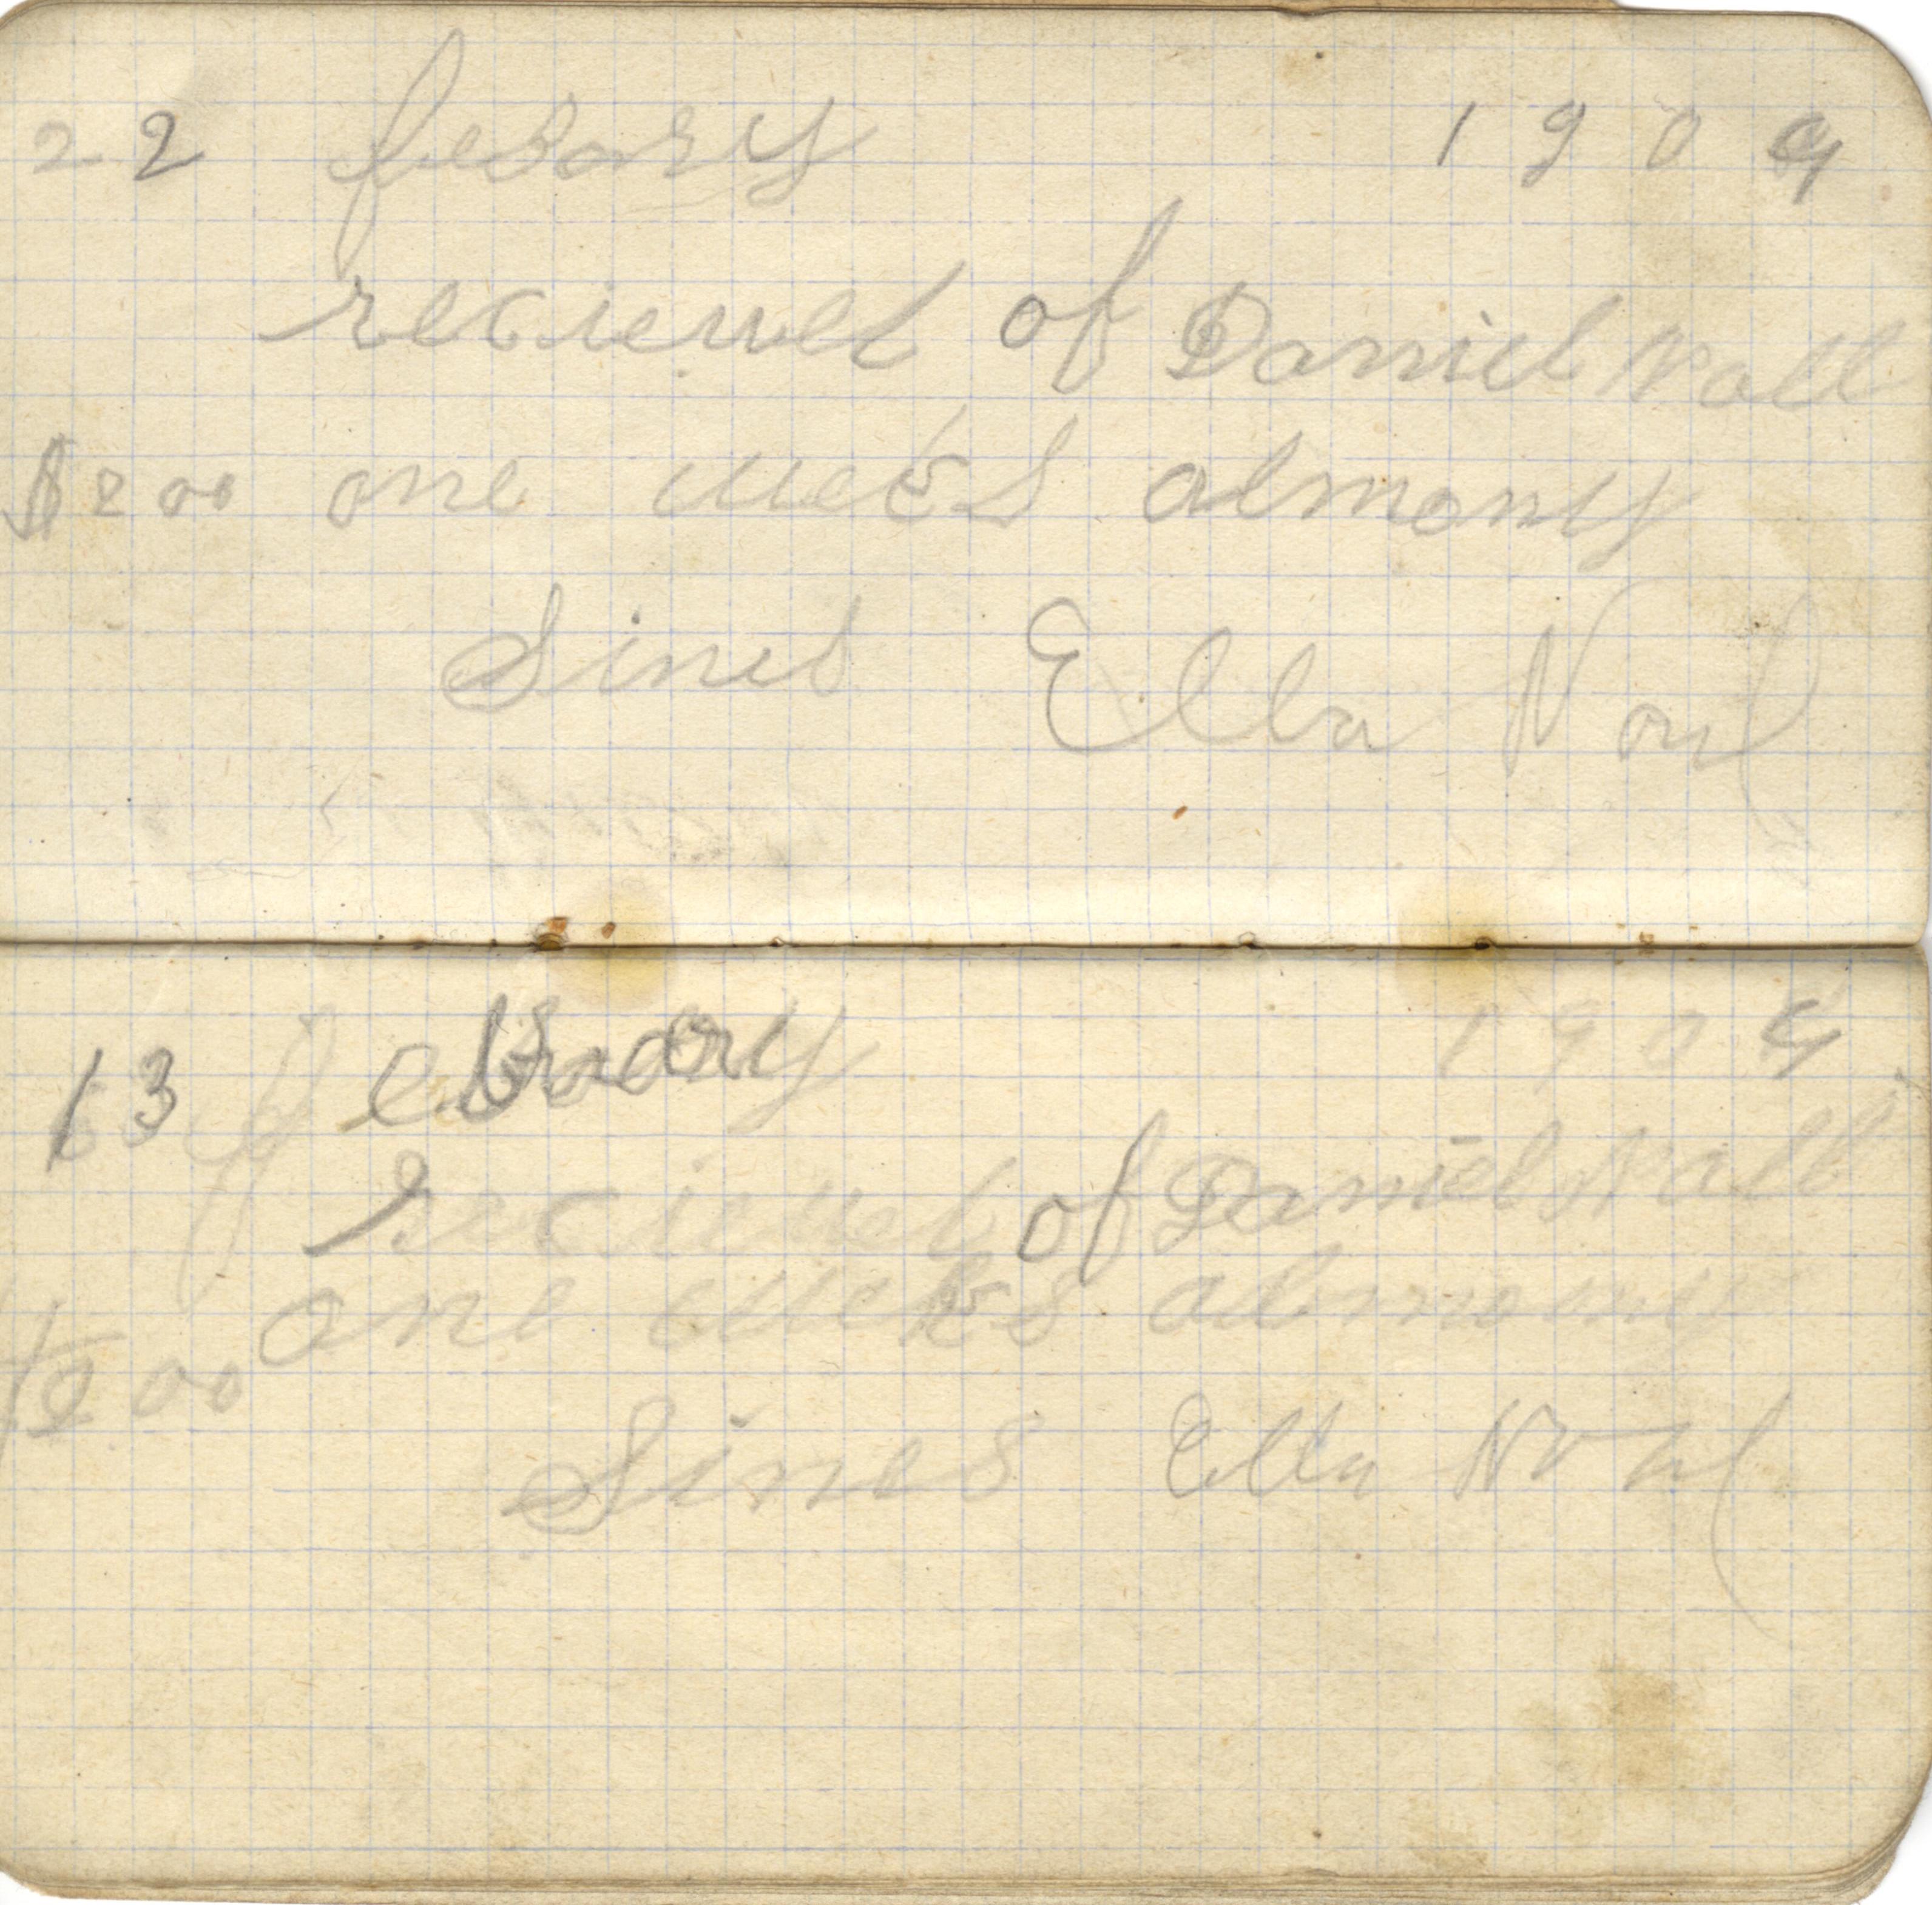 22 febary 1909
recieved of Daniel Nall
$2 00 one weeks almony
Sines Ella Noul
13 february 1909
recieved of Daniel Nall
one weeks almony
$2 00
Sines Ella Noul